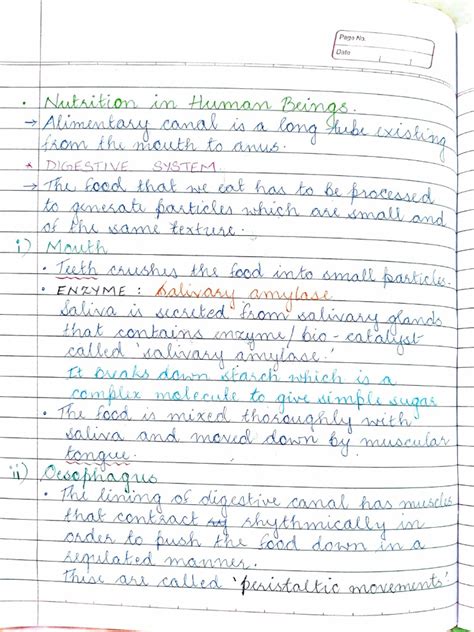 Page No.
Date
• Nutrition in Human Beings.
→ Alimentary canal is a long tube existing
from the mouth to anus.
* DIGESTIVE SYSTEM
→ The food that we eat has to be processed
to generate particles which are small and
of the same texture.
i) Mouth
• Teeth crushes the food into small particles.
• ENZYME : Salivary amylase
Saliva is secreted from salivary glands
that contains enzyme/bio-catalyst
called 'salivary amylase.'
It breaks down starch which is a
complex molecule to give simple sugar
• The food is mixed thoroughly with
saliva and moved down by muscular
tongue.
ii) Oesophagus
• The lining of digestive canal has muscles
that contract rhythmically in
order to push the food down in a
regulated manner.
These are called 'peristaltic movements'